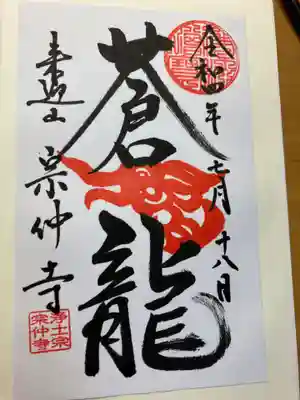 令和四年
七月
十八日
蒼龍
宗仲寺
浄土宗
宗仲寺